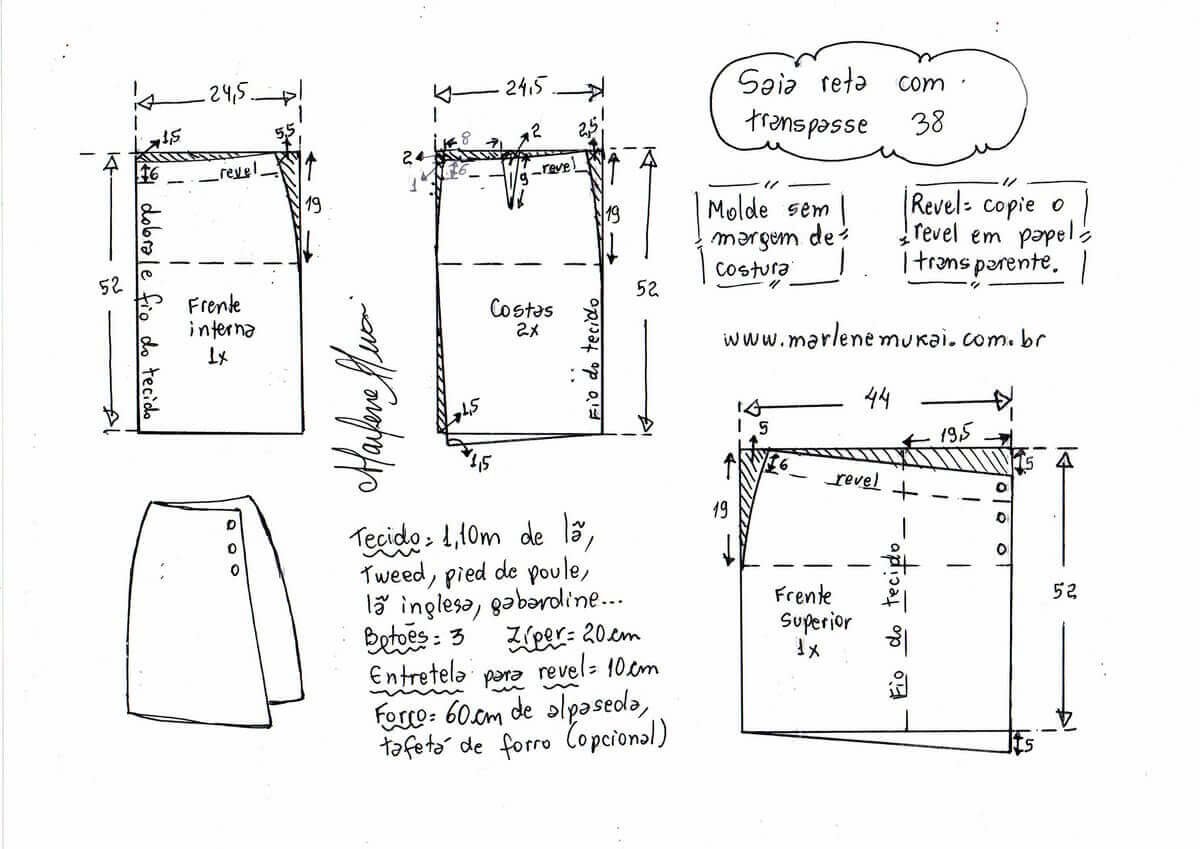 Saia reta com
transpasse 38
Molde sem
margem de
costura
Revel= copie o
revel em papel
transparente.
www.marlenemukai.com.br
24,5
1,5
5,5
6
revel
19
52
dobra e fio do tecido
Frente
interna
1x
24,5
8
2
2,5
2
1
6
9
revel
19
52
Costas
2x
Fio do tecido
1,5
1,5
Marlene Mukai
44
5
19,5
6
5
revel
19
52
Fio do tecido
Frente
Superior
1x
5
Tecido= 1,10m de lã,
Tweed, pied de poule,
lã inglesa, gabardine...
Botões= 3 Zíper= 20cm
Entretela para revel= 10cm
Forro= 60cm de alpaseda,
tafetá de forro (opcional)